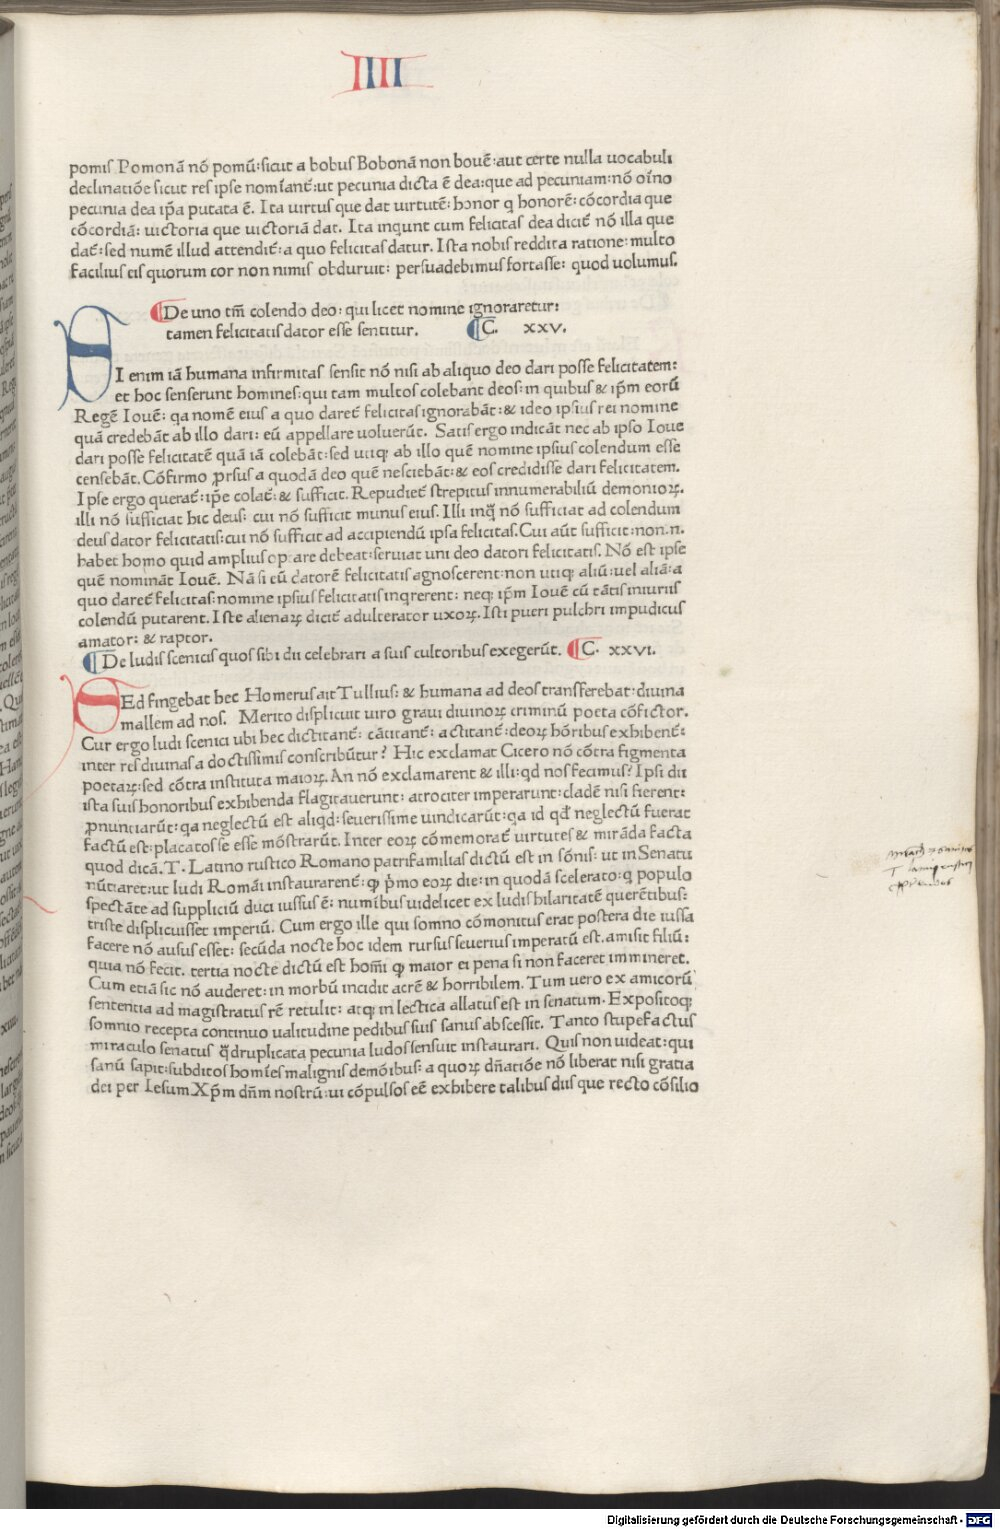 IIII
pomis Pomonā nō pomū: sicut a bobus Bobonā non bouē: aut certe nulla uocabuli
declinatiōe sicut res ipse nomīant̄: ut pecunia dicta ē dea: que ad pecuniam: nō oīno
pecunia dea ip̄a putata ē. Ita uirtus que dat uirtutē: honor q honorē: cōcordia que
cōcordiā: uictoria que uictoriā dat. Ita inqunt cum felicitas dea dicit̄ nō illa que
dat̄: sed numē illud attendit̄: a quo felicitas datur. Ista nobis reddita ratione: multo
facilius eis quorum cor non nimis obduruit: persuadebimus fortasse: quod uolumus.
De uno tm̄ colendo deo: qui licet nomine ignoraretur:
tamen felicitatis dator esse sentitur. C. xxv.
SI enim iā humana infirmitas sensit nō nisi ab aliquo deo dari posse felicitatem:
et hoc senserunt homines: qui tam multos colebant deos: in quibus & ip̄m eorū
Regē Iouē: qa nomē eius a quo daret̄ felicitas ignorabāt: & ideo ipsius rei nomine
quā credebāt ab illo dari: eū appellare uoluerūt. Satis ergo indicāt nec ab ipso Ioue
dari posse felicitatē quā iā colebāt: sed utiq; ab illo quē nomine ipsius colendum esse
censebāt. Cōfirmo ꝓrsus a quodā deo quē nesciebāt: & eos credidisse dari felicitatem.
Ipse ergo querat̄: ip̄e colat̄: & sufficit. Repudiet̄ strepitus innumerabiliū demonioꝝ.
illi nō sufficiat hic deus: cui nō sufficit munus eius. Illi inqᷓ nō sufficiat ad colendum
deus dator felicitatis: cui nō sufficit ad accipiendū ipsa felicitas. Cui aūt sufficit: non.n.
habet homo quid amplius optare debeat: seruiat uni deo datori felicitatis. Nō est ipse
quē nomināt Iouē. Nā si eū datorē felicitatis agnoscerent: non utiq; aliū: uel aliā: a
quo daret̄ felicitas: nomine ipsius felicitatis inqrerent: neq; ip̄m Iouē cū tātis iniuriis
colendū putarent. Iste alienaꝝ dicit̄ adulterator uxoꝝ. Isti pueri pulchri impudicus
amator: & raptor.
De ludis scenicis quos sibi dii celebrari a suis cultoribus exegerūt. C. xxvi.
SEd fingebat hec Homerus ait Tullius: & humana ad deos transferebat: diuina
mallem ad nos. Merito displicuit uiro graui diuinoꝝ criminū poeta cōfictor.
Cur ergo ludi scenici ubi hec dictitant̄: cātitant̄: actitant̄: deoꝝ hōribus exhibent̄:
inter res diuinas a doctissimis conscribūtur? Hic exclamat Cicero nō cōtra figmenta
poetaꝝ: sed cōtra instituta maioꝝ. An nō exclamarent & illi: qd nos fecimus? Ipsi dii
ista suis honoribus exhibenda flagitauerunt: atrociter imperarunt: cladē nisi fierent:
ꝓnunciarūt: qa neglectū est aliqd: seuerissime uindicarūt: qa id qd neglectū fuerat
factū est: placatos se esse mōstrarūt. Inter eoꝝ cōmemorat̄ uirtutes & mirāda facta
quod dicā. T. Latino rustico Romano patrifamilias dictū est in sōnis: ut in Senatu
nūtiaret: ut ludi Romāi instaurarent̄: ꝙ p̄mo eoꝝ die: in quodā scelerato: q populo
spectāte ad suppliciū duci iussus ē: numībus uidelicet ex ludis hilaritatē querētibus:
triste displicuisset imperiū. Cum ergo ille qui somno cōmonitus erat postera die iussa
facere nō ausus esset: secūda nocte hoc idem rursus seuerius imperatū est. amisit filiū:
quia nō fecit. tertia nocte dictū est homī ꝙ maior ei pena si non faceret immineret.
Cum etiā sic nō auderet: in morbū incidit acrē & horribilem. Tum uero ex amicorū
sententia ad magistratus rē retulit: atq; in lectica allatus est in senatum. Expositoq;
somnio recepta continuo ualitudine pedibus suis sanus abscessit. Tanto stupefactus
miraculo senatus qᷓdruplicata pecunia ludos sensuit instaurari. Quis non uideat: qui
sanū sapit: subditos homīes malignis demōibus: a quoꝝ dn̄atiōe nō liberat nisi gratia
dei per Iesum Xp̄m dn̄m nostrū: ui cōpulsos eē exhibere talibus diis que recto cōsilio
Digitalisierung gefördert durch die Deutsche Forschungsgemeinschaft - DFG